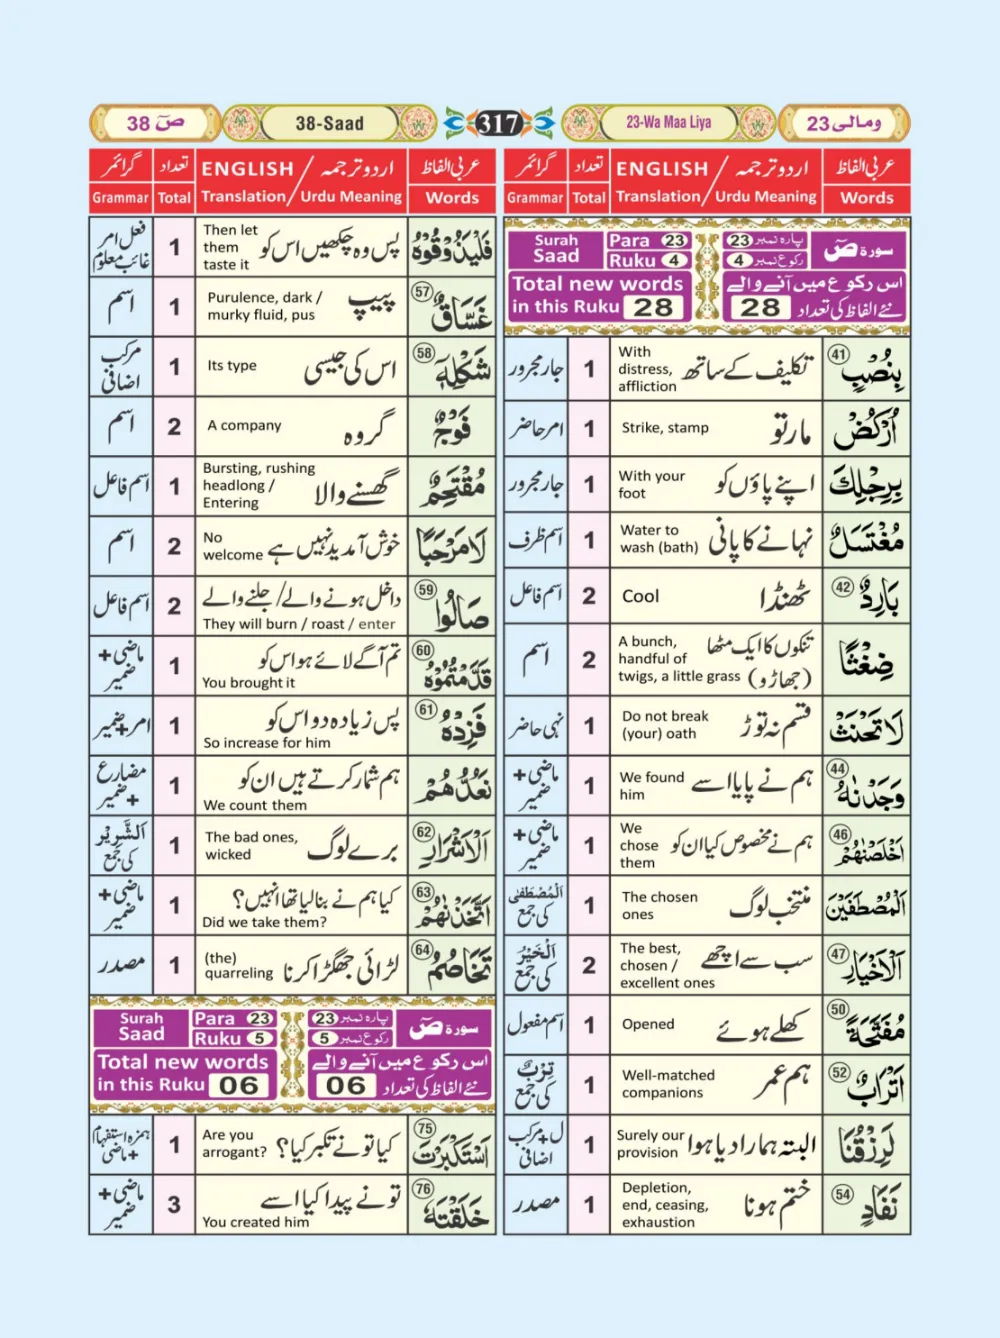 ومالی 23
23-Wa Maa Liya
317
38-Saad
صٓ 38
عربی الفاظ Words
اردو ترجمہ / ENGLISH
Translation / Urdu Meaning
تعداد Total
گرائمر Grammar
Surah Saad Para 23 Ruku 4 پارہ نمبر 23 رکوع نمبر 4 سورۃ صٓ
Total new words in this Ruku 28
اس رکوع میں آنے والے نئے الفاظ کی تعداد 28
41 بِنُصْبٍ تکلیف کے ساتھ With distress, affliction 1 جار مجرور
اُرْكُضْ مار تو Strike, stamp 1 امر حاضر
بِرِجْلِكَ اپنے پاؤں کو With your foot 1 جار مجرور
مُغْتَسَلٌ نہانے کا پانی Water to wash (bath) 1 اسم ظرف
42 بَارِدٌ ٹھنڈا Cool 2 اسم فاعل
ضِغْثًا تنکوں کا ایک مٹھا (جھاڑو) A bunch, handful of twigs, a little grass 2 اسم
لَا تَحْنَثْ قسم نہ توڑ Do not break (your) oath 1 نہی حاضر
44 وَجَدْنٰهُ ہم نے پایا اسے We found him 1 ماضی + ضمیر
46 اَخْلَصْنٰهُمْ ہم نے مخصوص کیا ان کو We chose them 1 ماضی + ضمیر
اَلْمُصْطَفَيْنَ منتخب لوگ The chosen ones 1 اَلْمُصْطَفٰی کی جمع
47 اَلْاَخْيَارِ سب سے اچھے The best, chosen / excellent ones 2 اَلْخَيْرُ کی جمع
50 مُفَتَّحَةً کھلے ہوئے Opened 1 اسم مفعول
52 اَتْرَابٌ ہم عمر Well-matched companions 1 تِرْبٌ کی جمع
لَرِزْقُنَا البتہ ہمارا دیا ہوا Surely our provision 1 ل + مرکب اضافی
54 نَفَادٍ ختم ہونا Depletion, end, ceasing, exhaustion 1 مصدر
عربی الفاظ Words
اردو ترجمہ / ENGLISH
Translation / Urdu Meaning
تعداد Total
گرائمر Grammar
فَلْيَذُوْقُوْهُ پس وہ چکھیں اس کو Then let them taste it 1 فعل امر غائب معلوم
57 غَسَّاقٌ پیپ Purulence, dark / murky fluid, pus 1 اسم
58 شَكْلِهٖ اس کی جیسی Its type 1 مرکب اضافی
فَوْجٌ گروہ A company 2 اسم
مُقْتَحِمٌ گھسنے والا Bursting, rushing headlong / Entering 1 اسم فاعل
لَا مَرْحَبًا خوش آمدید نہیں ہے No welcome 2 اسم
59 صَالُوا داخل ہونے والے / جلنے والے They will burn / roast / enter 2 اسم فاعل
60 قَدَّمْتُمُوْهُ تم آگے لائے ہو اس کو You brought it 1 ماضی + ضمیر
61 فَزِدْهُ پس زیادہ دو اس کو So increase for him 1 امر + ضمیر
نَعُدُّهُمْ ہم شمار کرتے ہیں ان کو We count them 1 مضارع + ضمیر
62 اَلْاَشْرَارِ برے لوگ The bad ones, wicked 1 اَلشَّرِيْرُ کی جمع
63 اَتَّخَذْنٰهُمْ کیا ہم نے بنالیا تھا انہیں؟ Did we take them? 1 ماضی + ضمیر
64 تَخَاصُمُ لڑائی جھگڑا کرنا (the) quarreling 1 مصدر
Surah Saad Para 23 Ruku 5 پارہ نمبر 23 رکوع نمبر 5 سورۃ صٓ
Total new words in this Ruku 06
اس رکوع میں آنے والے نئے الفاظ کی تعداد 06
75 اَسْتَكْبَرْتَ کیا تو نے تکبر کیا؟ Are you arrogant? 1 ہمزہ استفہام + ماضی
76 خَلَقْتَهٗ تو نے پیدا کیا اسے You created him 3 ماضی + ضمیر